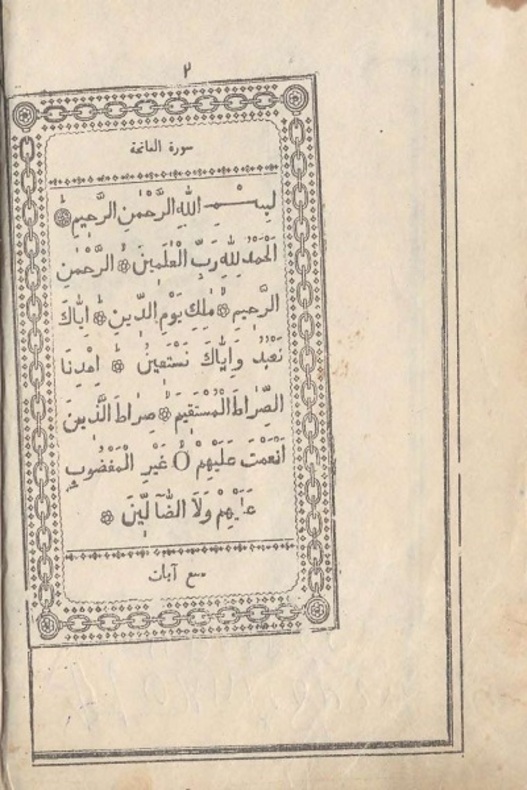 ٢
سورة الفاتحة
بِسْــمِ اللهِ الرَّحْمٰنِ الرَّحِيمِ
اَلْحَمْدُ لِلهِ رَبِّ الْعٰلَمِينَ الرَّحْمٰنِ
الرَّحِيمِ مٰلِكِ يَوْمِ الدِّينِ اِيَّاكَ
نَعْبُدُ وَاِيَّاكَ نَسْتَعِينُ اِهْدِنَا
الصِّرَاطَ الْمُسْتَقِيمَ صِرَاطَ الَّذِينَ
اَنْعَمْتَ عَلَيْهِمْ غَيْرِ الْمَغْضُوبِ
عَلَيْهِمْ وَلَا الضَّآلِّينَ
سبع آيات